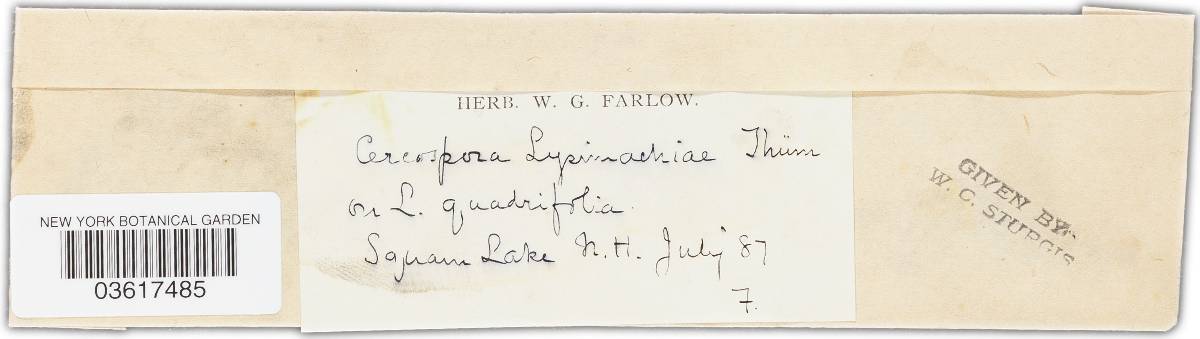 HERB. W. G. FARLOW.
Cercospora Lysimachiae Thüm
on L. quadrifolia.
Squam Lake N.H. July 87
F.
NEW YORK BOTANICAL GARDEN
03617485
GIVEN BY
W. C. STURGIS